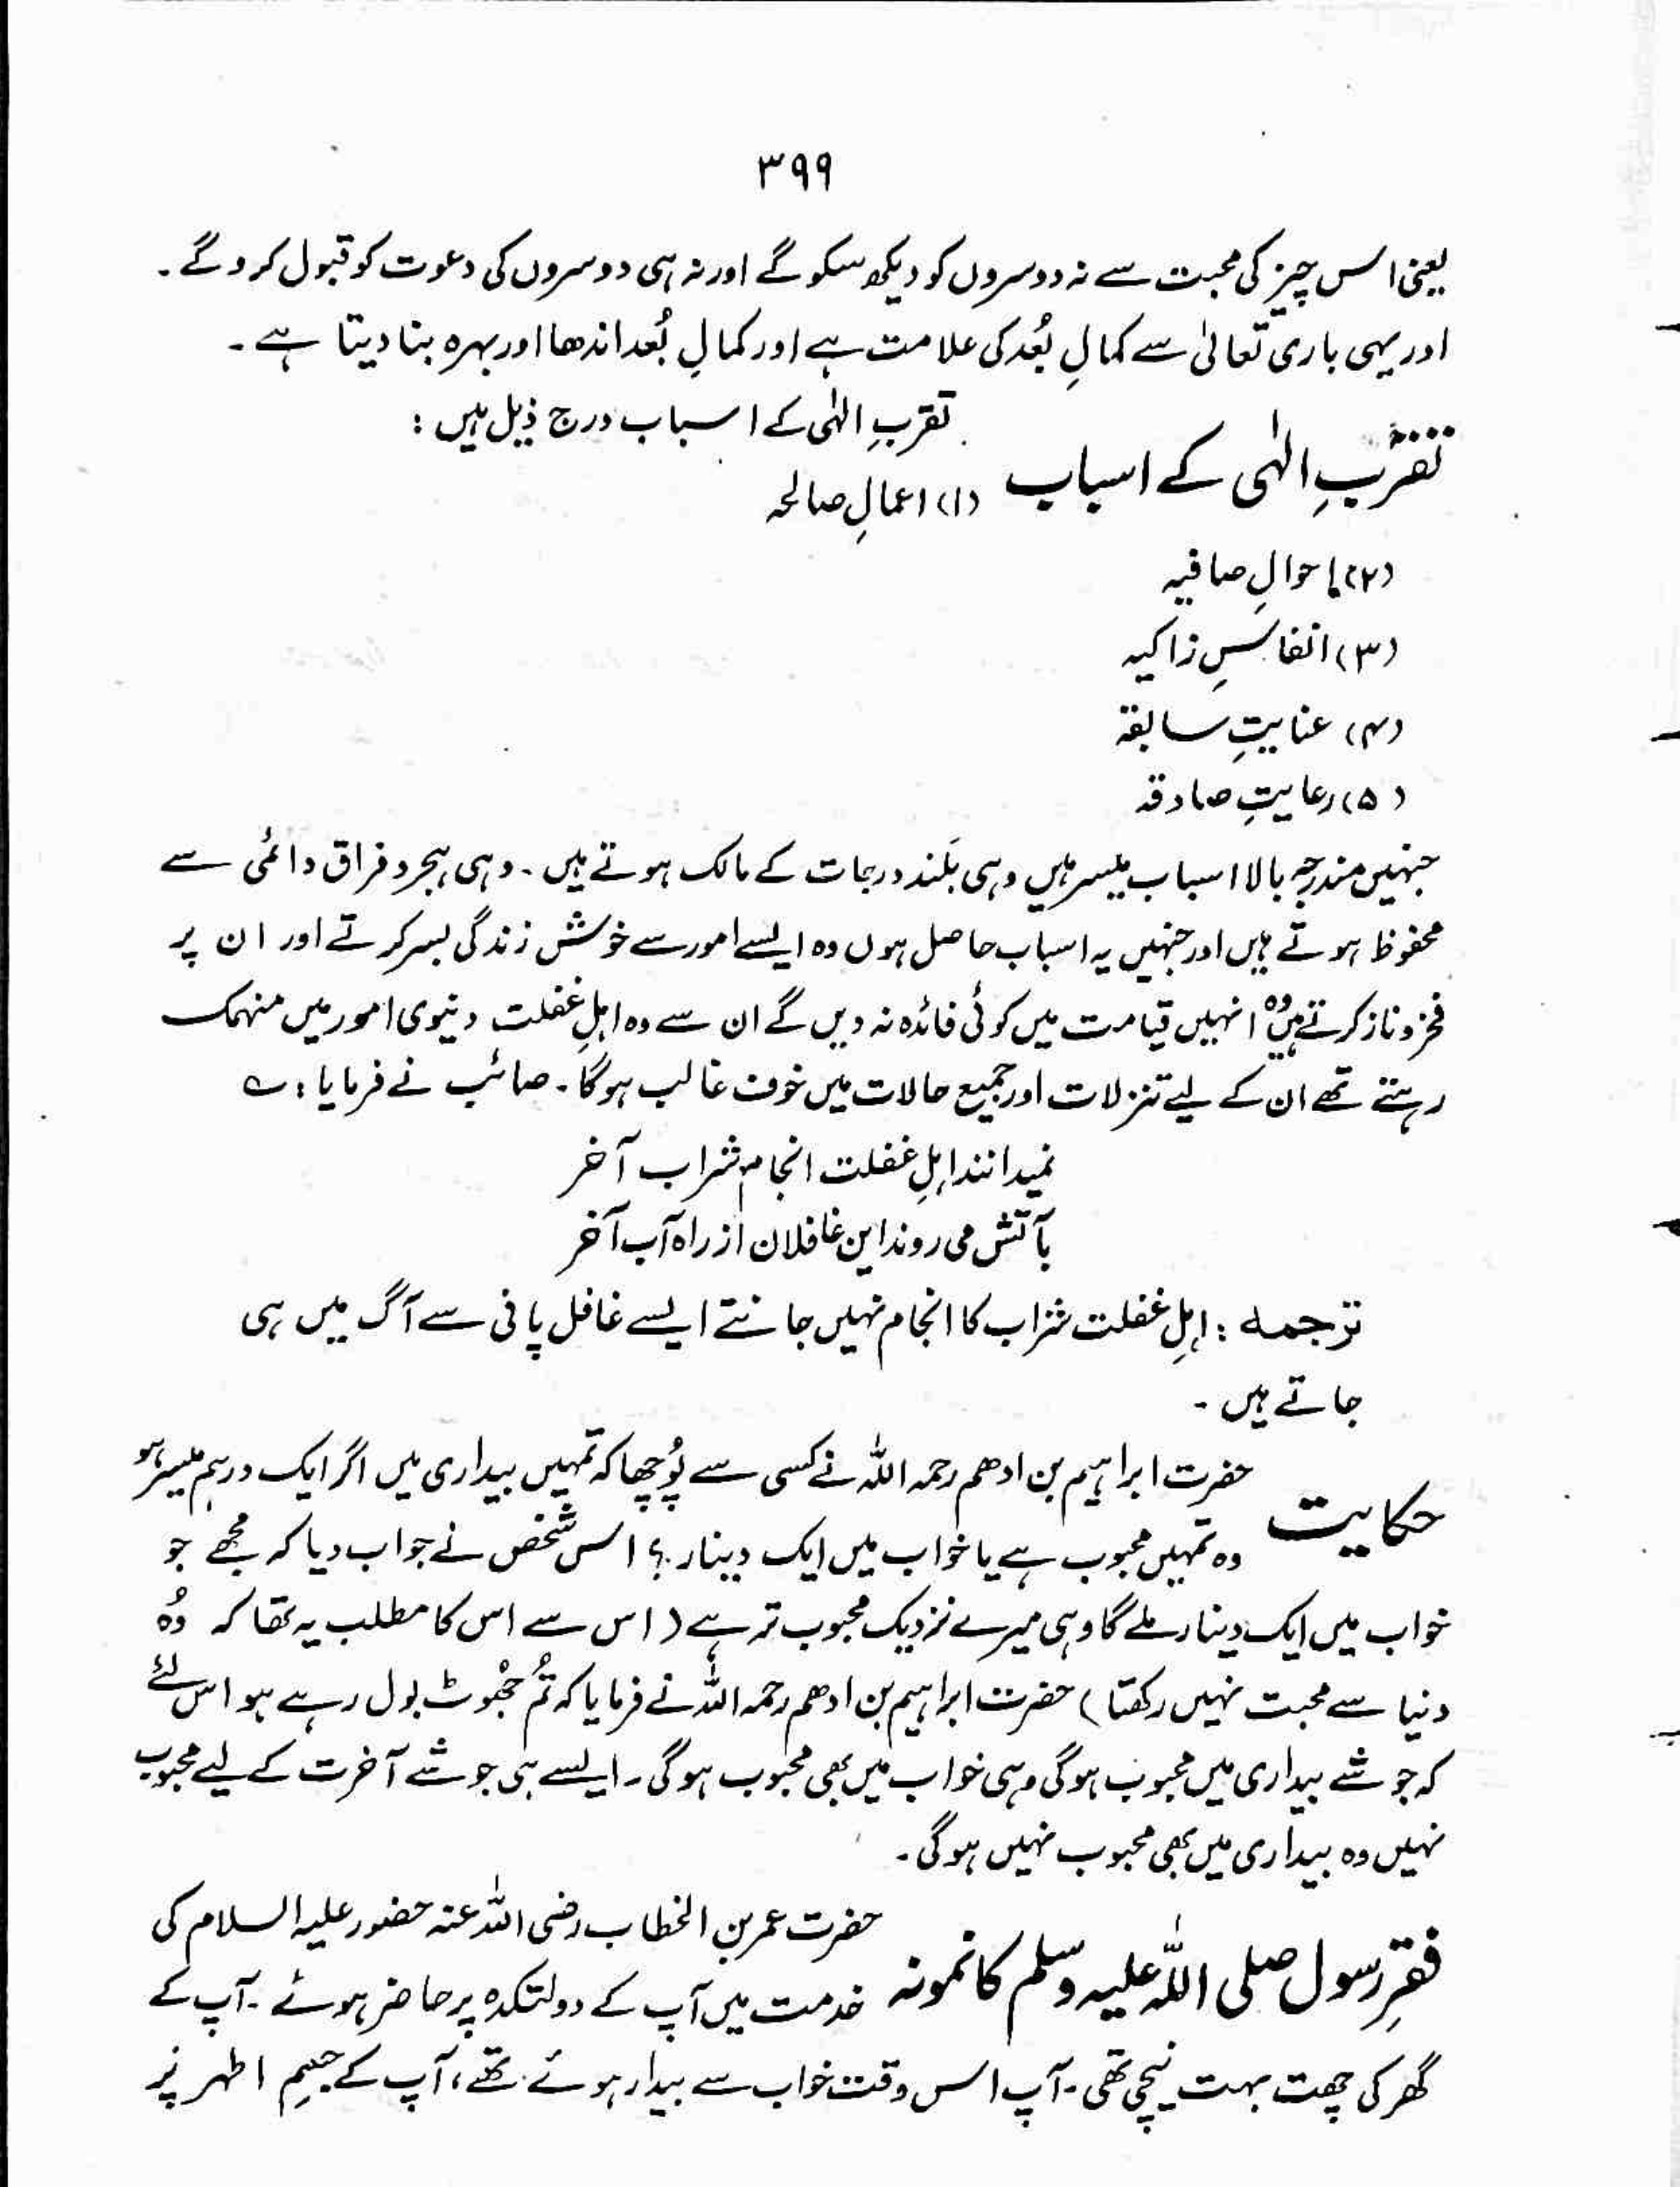 ۳۹۹
یعنی اس چیز کی محبت سے نہ دوسروں کو دیکھ سکو گے اور نہ ہی دوسروں کی دعوت کو قبول کرو گے ۔
اور یہی باری تعالیٰ سے کمالِ بُعد کی علامت ہے اور کمالِ بُعد اندھا اور بہرہ بنا دیتا ہے ۔
تقرّبِ الٰہی کے اسباب
تقربِ الٰہی کے اسباب درج ذیل ہیں :
(۱) اعمالِ صالحہ
(۲) احوالِ صافیہ
(۳) انفاسِ زاکیہ
(۴) عنایتِ سابقۃ
(۵) رعایتِ صادقہ
جنہیں مندرجہ بالا اسباب میسر ہیں وہی بَلند درجات کے مالک ہوتے ہیں ۔ وہی ہجر و فراق دائمی سے
محفوظ ہوتے ہیں اور جنہیں یہ اسباب حاصل ہوں وہ ایسے امور سے خوش زندگی بسر کرتے اور ان پر
فخر و ناز کرتے ہیں وُہ انہیں قیامت میں کوئی فائدہ نہ دیں گے ان سے وہ اہلِ غفلت دنیوی امور میں منہمک
رہتے تھے ان کے لیے تنزلات اور جمیع حالات میں خوف غالب ہوگا ۔ صائب نے فرمایا : ؎
نمیدانند اہلِ غفلت انجام شراب آخر
بآتش می روند این غافلان از راہ آب آخر
ترجمہ : اہلِ غفلت شراب کا انجام نہیں جانتے ایسے غافل پانی سے آگ میں ہی
جاتے ہیں ۔
حکایت
حضرت ابراہیم بن ادھم رحمہ اللہ نے کسی سے پُوچھا کہ تمہیں بیداری میں اگر ایک درہم میسر ہو
وہ تمہیں محبوب ہے یا خواب میں ایک دینار ؟ اس شخص نے جواب دیا کہ مجھے جو
خواب میں ایک دینار ملے گا وہی میرے نزدیک محبوب تر ہے ( اس سے اس کا مطلب یہ تھا کہ وُہ
دنیا سے محبت نہیں رکھتا ) حضرت ابراہیم بن ادھم رحمہ اللہ نے فرمایا کہ تُم جُھوٹ بول رہے ہو اس لئے
کہ جو شے بیداری میں محبوب ہوگی وہی خواب میں بھی محبوب ہوگی ۔ ایسے ہی جو شے آخرت کے لیے محبوب
نہیں وہ بیداری میں بھی محبوب نہیں ہوگی ۔
فقرِ رسول صلی اللہ علیہ وسلم کا نمونہ
حضرت عمر بن الخطاب رضی اللہ عنہ حضور علیہ السلام کی
خدمت میں آپ کے دولتکدہ پر حاضر ہوئے ۔ آپ کے
گھر کی چھت بہت نیچی تھی ۔ آپ اس وقت خواب سے بیدار ہوئے تھے ، آپ کے جسمِ اطہر پر